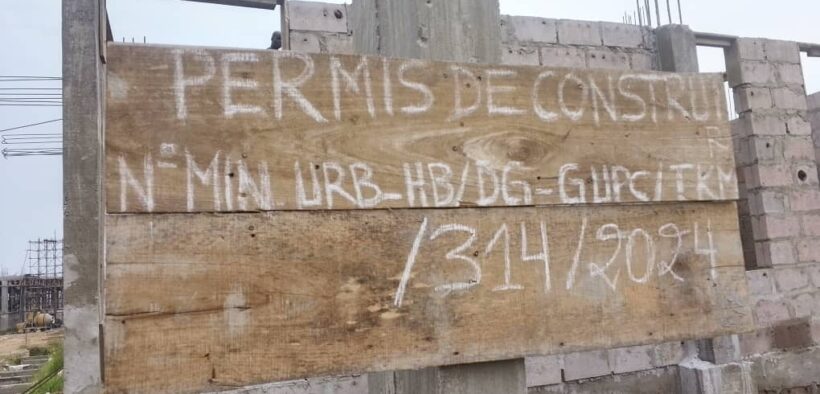 PERMIS DE CONSTRUIR
N° MIN. URB_HB/DG_GUPC/TKM
/314/2024